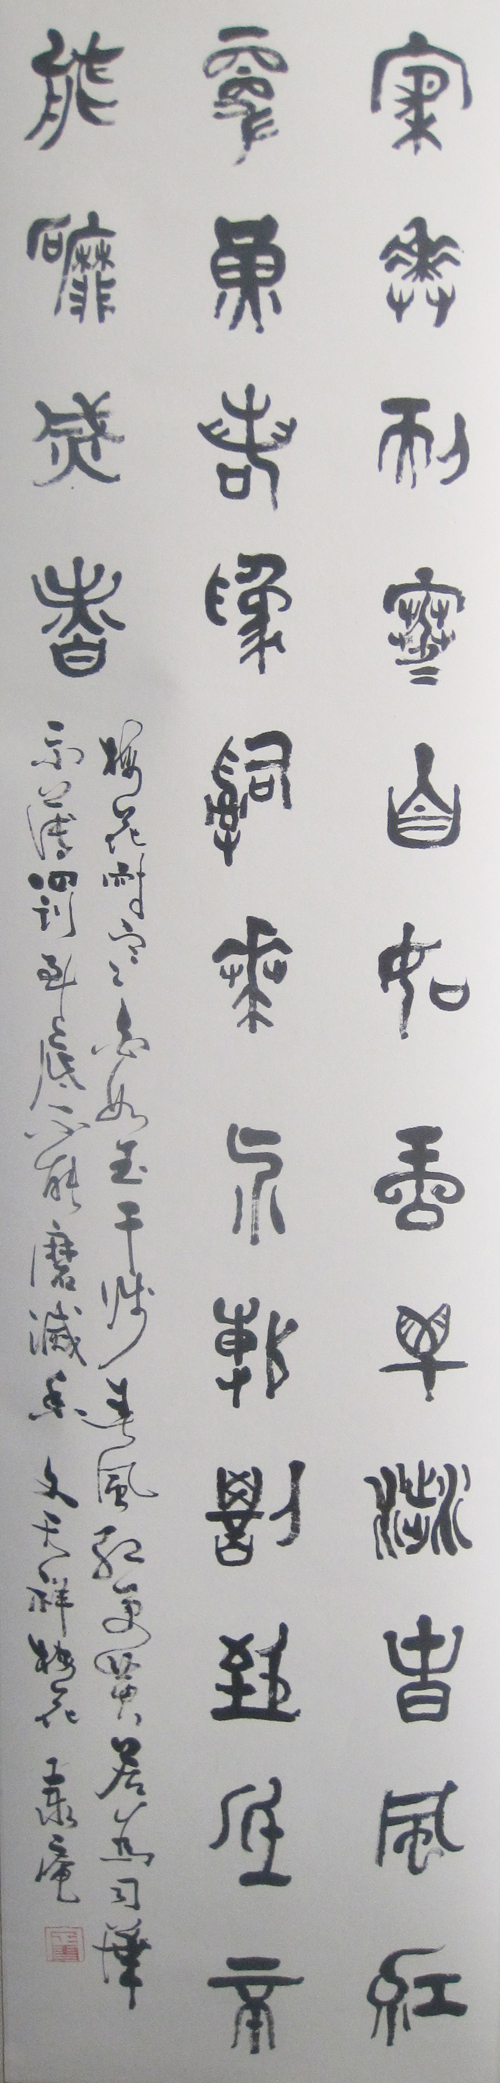 梅華耐寒白如玉干涉春風紅
更黃若為司華示薄罰到底不
能磨滅香
梅花耐寒白如玉干涉春風紅更黄若為司華
示薄罰到底不能磨滅香 文天祥梅花 庵